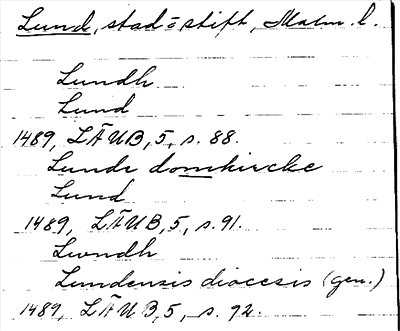 Lund, stad = stift, Malm. l.
Lundh
Lund
1489, LÄUB, 5, s. 88.
Lunde domkircke
Lund
1489, LÄUB, 5, s. 91.
Lwndh
Lundensis diocesis (gen.)
1489, LÄUB, 5, s. 92.